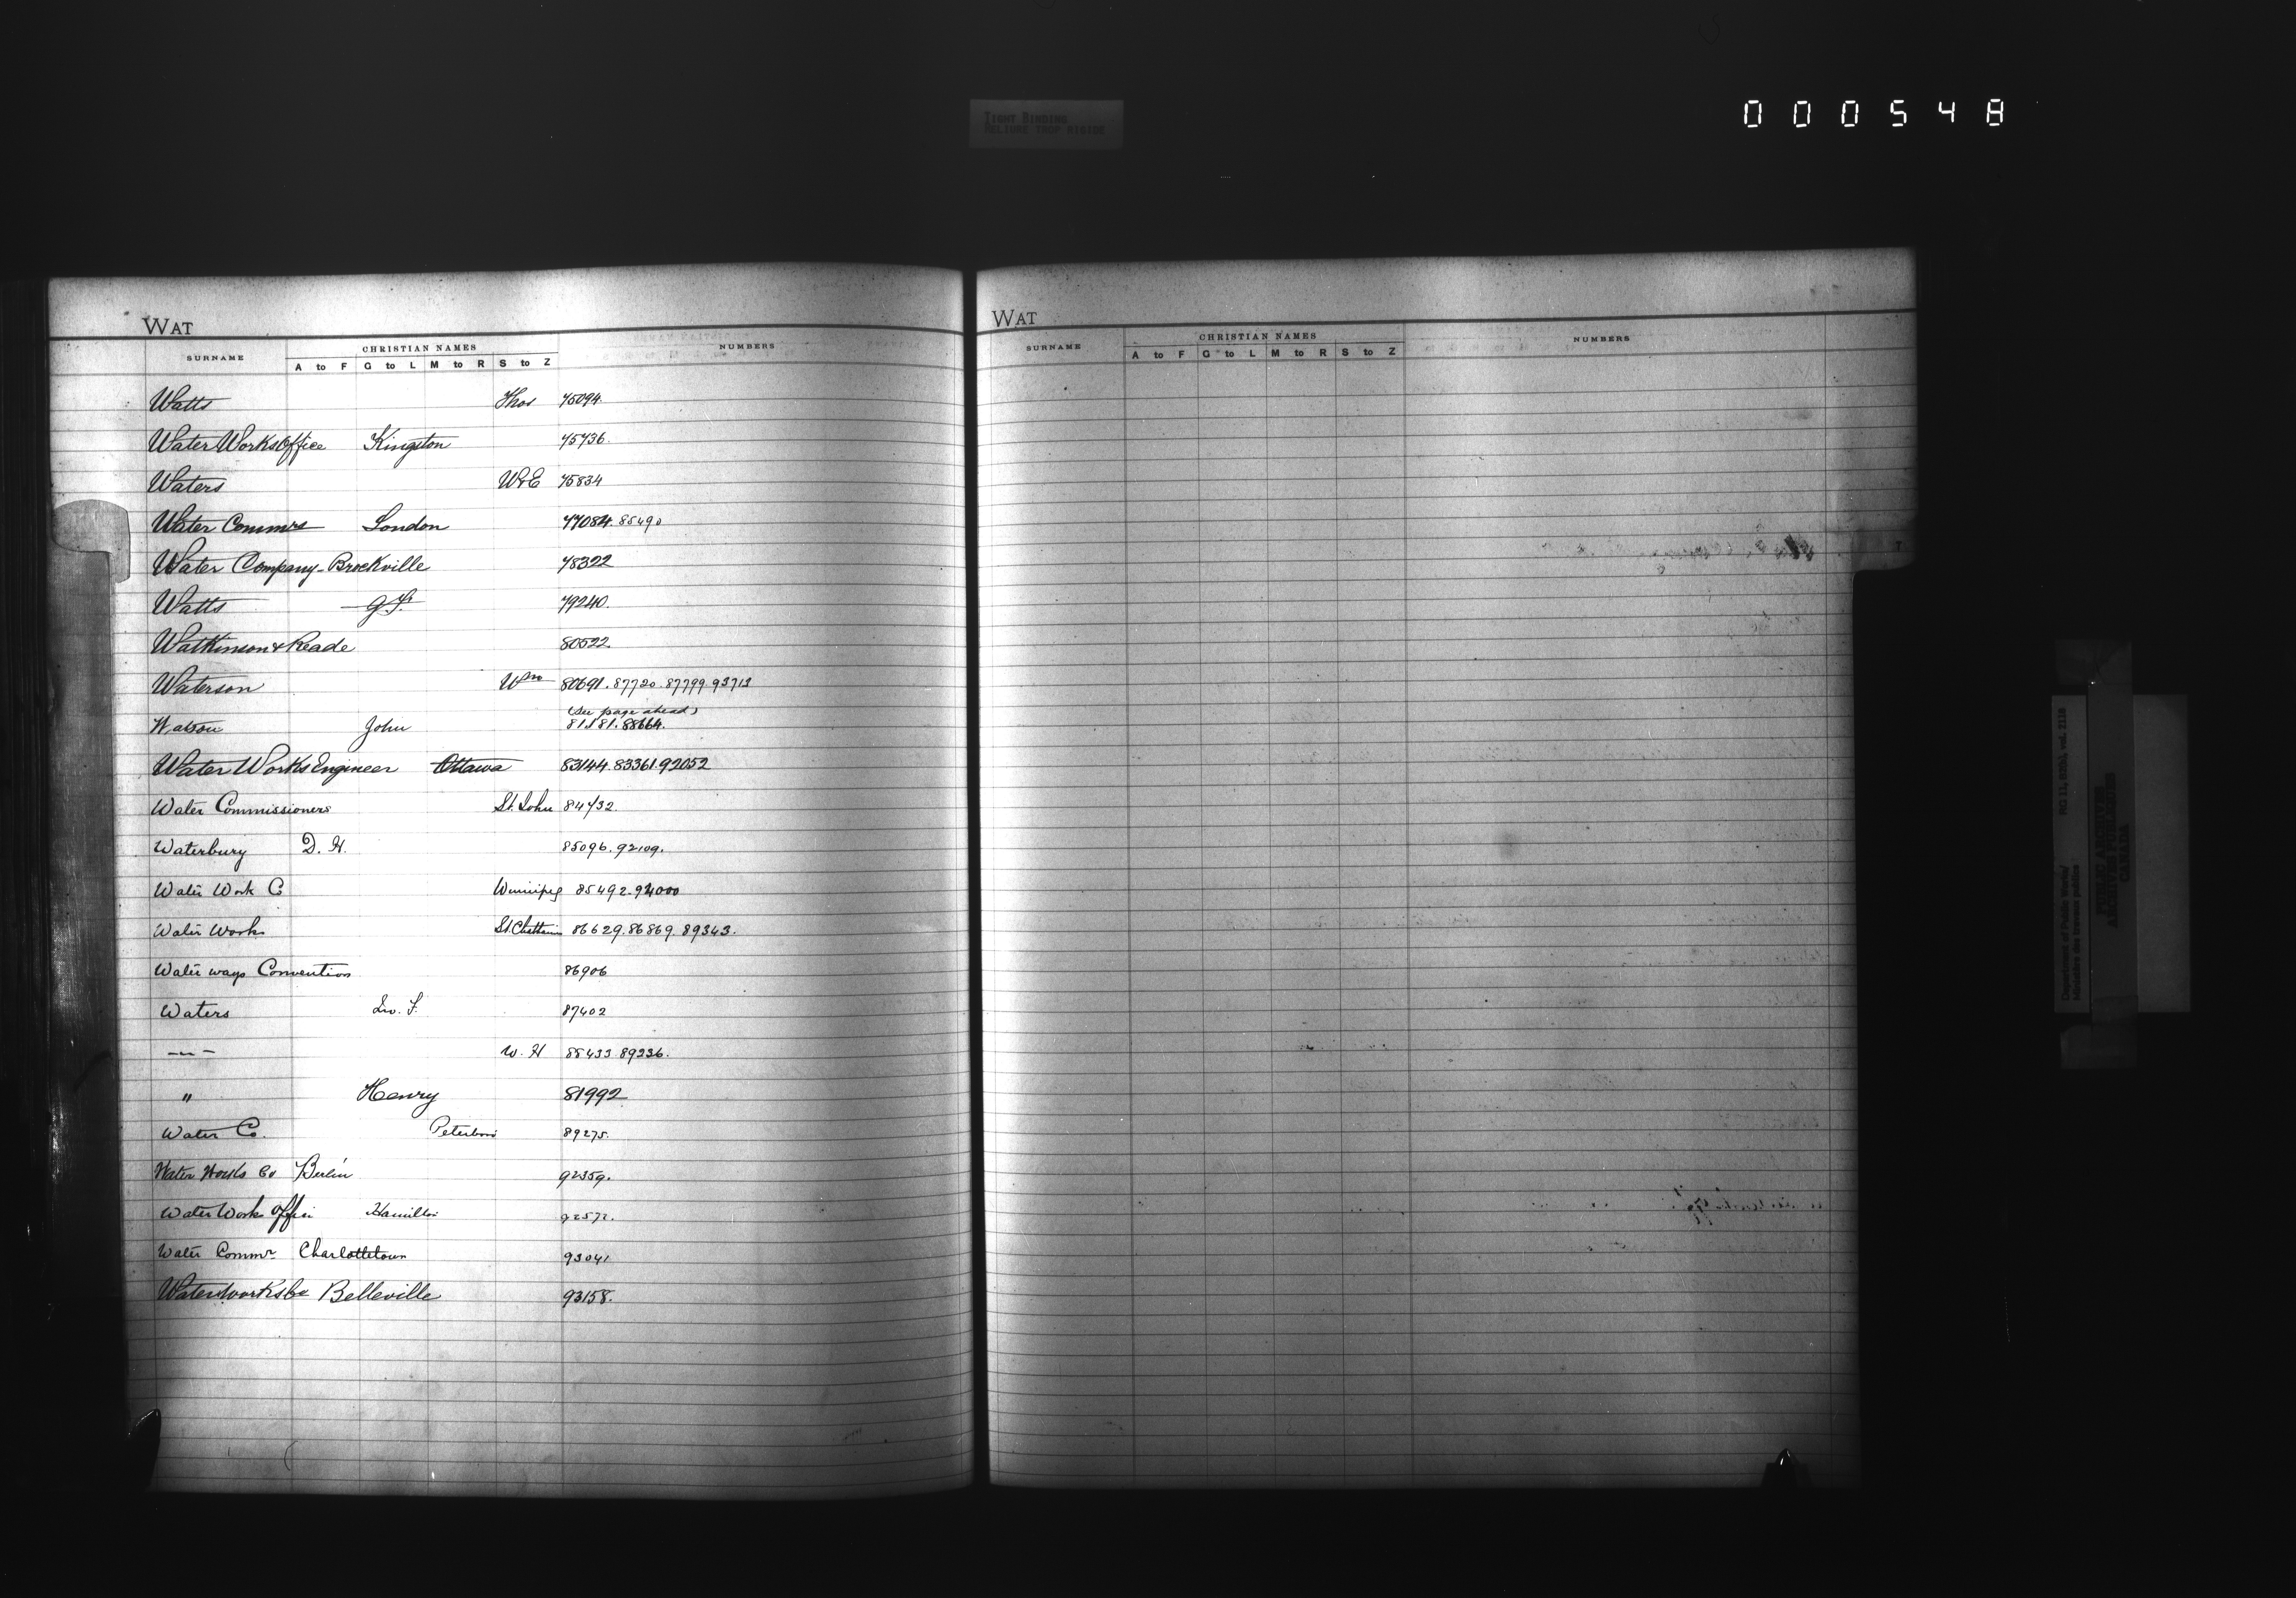 000548
TIGHT BINDING
RELIURE TROP RIGIDE
WAT
SURNAME CHRISTIAN NAMES NUMBERS
A to F G to L M to R S to Z
Watts Thos 75094.
Water Works Office Kingston 75736.
Waters W&E 75834
Water Commrs London 77084. 85490
Water Company - Brockville 78322
Watts 79240.
Watkinson & Reade 80522
Waterson Wm 80691. 87720. 87799. 93713
(See page ahead)
Watson John 81181. 88664.
Water Works Engineer Ottawa 83144. 83361. 92052
Water Commissioners St. John 84732.
Waterbury D. H. 85096. 92109.
Water Work Co Winnipeg 85492. 94000
Water Works 86629. 86869. 89343.
Water ways Convention 86906
Waters 87402
-"- W. H 88433. 89236.
" Henry 81992
Water Co. Peterboro 89275.
Water Works Co Berlin 92359.
Water Works Office Hamilton 92572.
Water Commr Charlottetown 93041
Waterworks Co Belleville 93158.
WAT
SURNAME CHRISTIAN NAMES NUMBERS
A to F G to L M to R S to Z
T
Department of Public Works/
Ministère des travaux publics
RG 11, B2(b), vol. 2118
PUBLIC ARCHIVES
ARCHIVES PUBLIQUES
CANADA